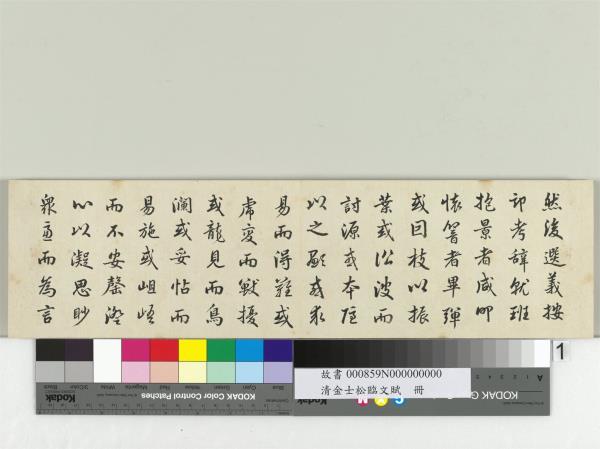 然後選義按
部考辭就班
抱景者咸叩
懷響者畢彈
或因枝以振
葉或沿波而
討源或本隱
以之顯或求
易而得難或
虎變而獸擾
或龍見而鳥
瀾或妥帖而
易施或岨峿
而不安罄澄
心以凝思眇
眾慮而為言
故書 000859N000000000
清金士松臨文賦 冊
1
Black 3/Color White Magenta Red Yellow Green Cyan Blue
Kodak KODAK Color Control Patches
A